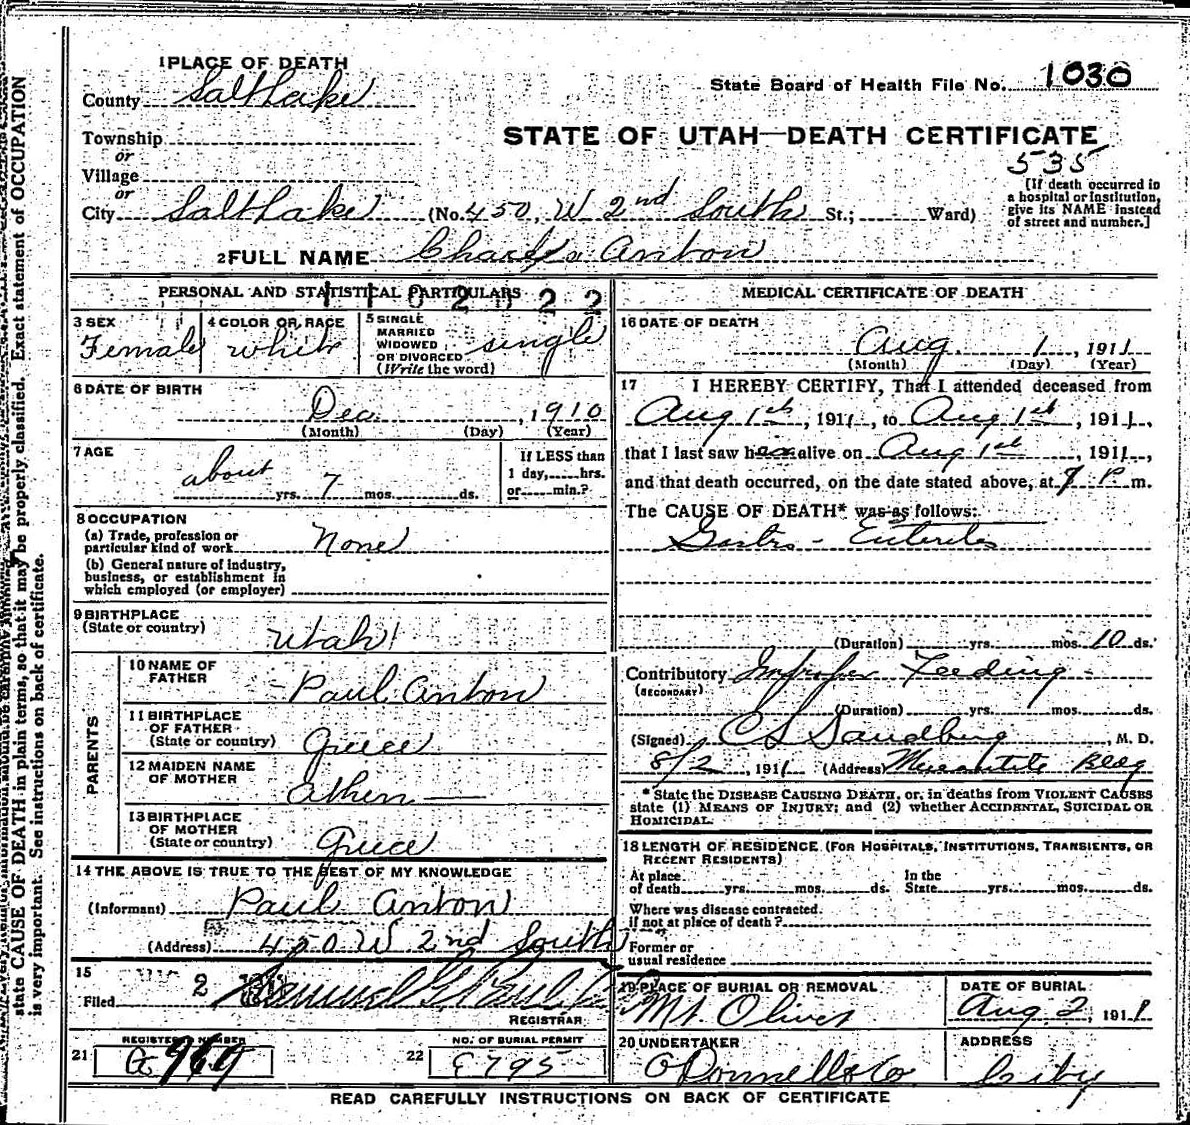 1 PLACE OF DEATH
County Salt Lake
State Board of Health File No. 1030
Township
or
Village
or
STATE OF UTAH—DEATH CERTIFICATE
535
City Salt Lake (No. 450, W 2nd South St.; Ward)
[If death occurred in
a hospital or institution,
give its NAME instead
of street and number.]
2 FULL NAME Charles Anton
PERSONAL AND STATISTICAL PARTICULARS
3 SEX
Female
4 COLOR OR RACE
white
5 SINGLE
MARRIED
WIDOWED
OR DIVORCED
(Write the word)
single
6 DATE OF BIRTH
Dec. , 1910
(Month) (Day) (Year)
7 AGE
about
yrs. 7 mos. ds.
If LESS than
1 day, hrs.
or min.?
8 OCCUPATION
(a) Trade, profession or
particular kind of work None
(b) General nature of industry,
business, or establishment in
which employed (or employer)
9 BIRTHPLACE
(State or country)
Utah
PARENTS
10 NAME OF
FATHER
Paul Anton
11 BIRTHPLACE
OF FATHER
(State or country) Greece
12 MAIDEN NAME
OF MOTHER
Athen
13 BIRTHPLACE
OF MOTHER
(State or country) Greece
14 THE ABOVE IS TRUE TO THE BEST OF MY KNOWLEDGE
(Informant) Paul Anton
(Address) 450 W 2nd South
15
Filed 2
REGISTRAR
21 REGISTERED NUMBER
969
22 NO. OF BURIAL PERMIT
E795
MEDICAL CERTIFICATE OF DEATH
16 DATE OF DEATH
Aug. 1, 1911
(Month) (Day) (Year)
17 I HEREBY CERTIFY, That I attended deceased from
Aug 1st, 1911, to Aug 1st, 1911,
that I last saw her alive on Aug 1st, 1911,
and that death occurred, on the date stated above, at 9 P. m.
The CAUSE OF DEATH* was as follows:
Gastro-Enterites
(Duration) yrs. mos. 10 ds.
Contributory Improper Feeding
(SECONDARY)
(Duration) yrs. mos. ds.
(Signed) C S Sandberg, M. D.
8/2, 1911 (Address) Mercantile Bldg
* State the DISEASE CAUSING DEATH, or, in deaths from VIOLENT CAUSES
state (1) MEANS OF INJURY; and (2) whether ACCIDENTAL, SUICIDAL OR
HOMICIDAL.
18 LENGTH OF RESIDENCE (FOR HOSPITALS, INSTITUTIONS, TRANSIENTS, OR
RECENT RESIDENTS)
At place
of death yrs. mos. ds.
In the
State yrs. mos. ds.
Where was disease contracted
if not at place of death?
Former or
usual residence
19 PLACE OF BURIAL OR REMOVAL
Mt. Olivet
DATE OF BURIAL
Aug 2, 1911
20 UNDERTAKER
O'Donnell & Co
ADDRESS
City
READ CAREFULLY INSTRUCTIONS ON BACK OF CERTIFICATE
state CAUSE OF DEATH in plain terms, so that it may be properly classified. Exact statement of OCCUPATION
is very important. See instructions on back of certificate.